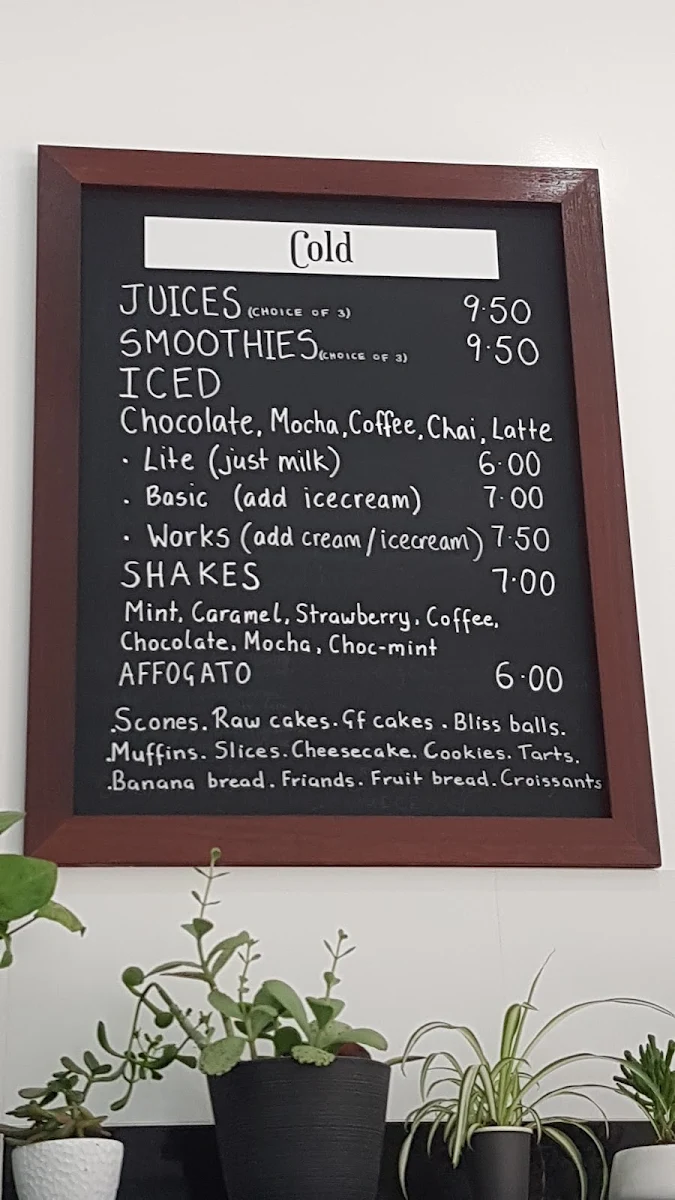 Cold
JUICES (CHOICE OF 3) 9.50
SMOOTHIES (CHOICE OF 3) 9.50
ICED
Chocolate, Mocha, Coffee, Chai, Latte
· Lite (just milk) 6.00
· Basic (add icecream) 7.00
· Works (add cream/icecream) 7.50
SHAKES 7.00
Mint, Caramel, Strawberry, Coffee,
Chocolate, Mocha, Choc-mint
AFFOGATO 6.00
.Scones. Raw cakes. Gf cakes. Bliss balls.
.Muffins. Slices. Cheesecake. Cookies. Tarts.
.Banana bread. Friands. Fruit bread. Croissants